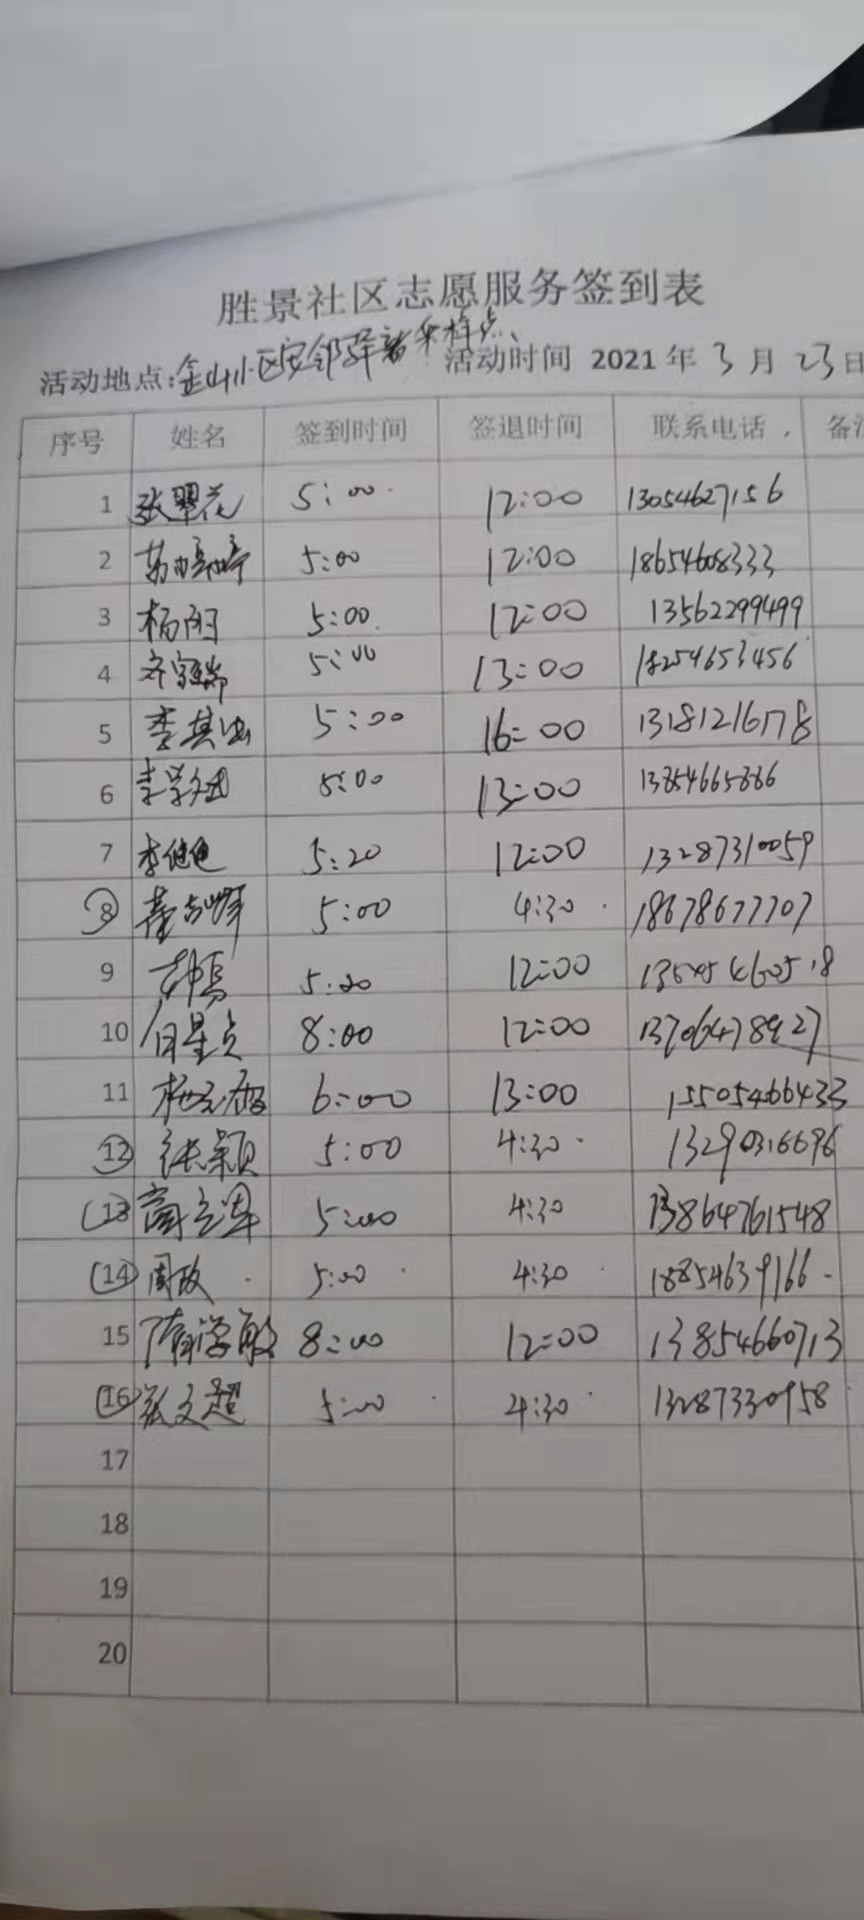 胜景社区志愿服务签到表
活动地点:金山小区安邻驿站采样点、 活动时间 2021 年 3 月 23 日
序号 姓名 签到时间 签退时间 联系电话 备注
1 张翠花 5:00 12:00 13054627156
2 5:00 12:00 18654608333
3 杨阳 5:00 12:00 13562299499
4 5:00 13:00 18254653456
5 李其 5:00 16:00 13181216178
6 李学 5:00 13:00 13854665886
7 李健 5:20 12:00 13287310059
⑧ 5:00 4:30 18678677707
9 5:20 12:00
10 8:00 12:00
11 6:00 13:00 15505466433
⑫ 张颖 5:00 4:30
⑬ 5:00 4:30 13864761548
⑭ 周政 5:00 4:30 18854639166
15 隋学敏 8:00 12:00 13854660713
⑯ 张文超 5:00 4:30 13287330958
17
18
19
20